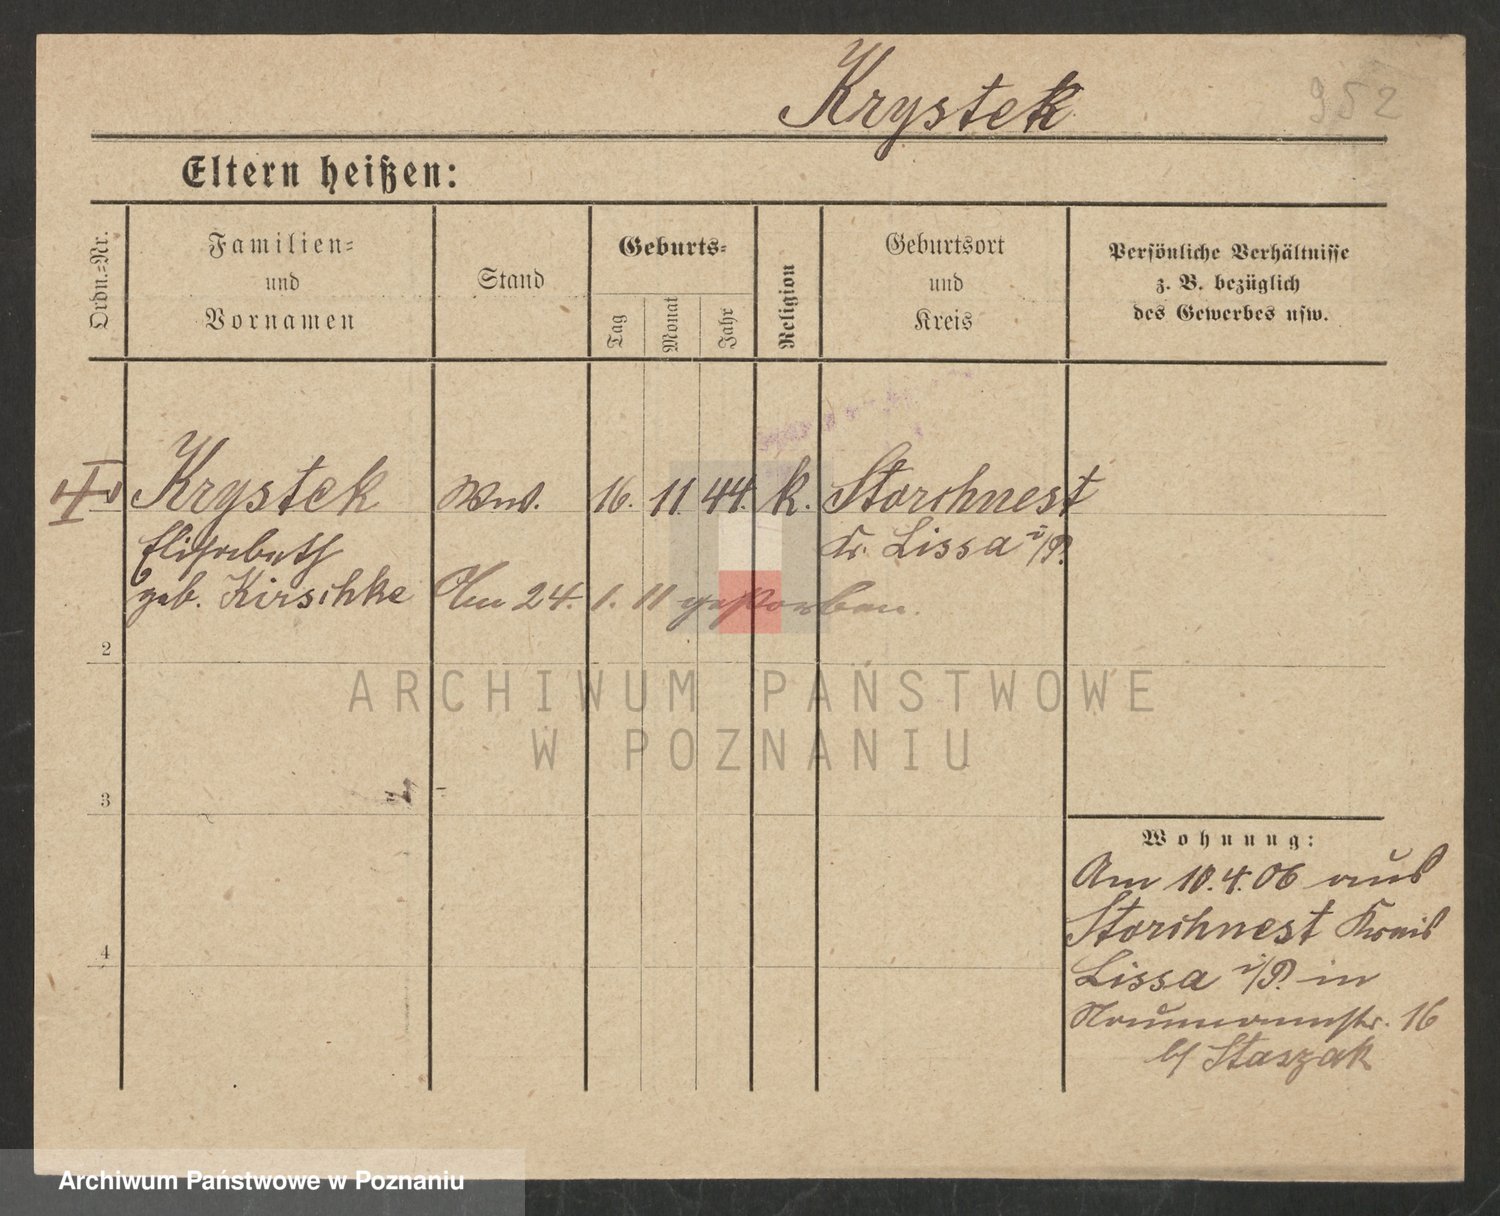 Krystek
952
Eltern heißen:
Ordn.=Nr.
Familien=
und
Vornamen
Stand
Geburts=
Tag
Monat
Jahr
Religion
Geburtsort
und
Kreis
Persönliche Verhältnisse
z. B. bezüglich
des Gewerbes usw.
I Krystek Ww. 16. 11. 44. k. Storchnest
Elisabeth Kr. Lissa i/P.
geb. Kirschke Am 24. 1. 11 gestorben.
2
3
4
Wohnung:
Am 10.4.06 aus
Storchnest Kreis
Lissa i/P. in
Naumannstr. 16
b/ Staszak
ARCHIWUM PAŃSTWOWE
W POZNANIU
Archiwum Państwowe w Poznaniu